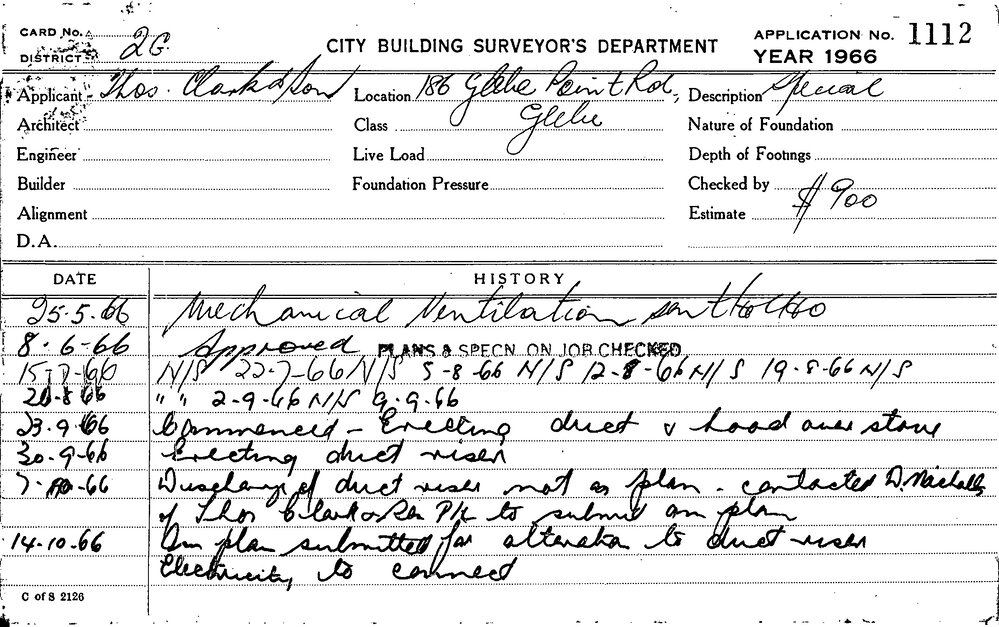 CARD No. 2G. CITY BUILDING SURVEYOR'S DEPARTMENT APPLICATION No. 1112
DISTRICT YEAR 1966
Applicant Thos. Clark & Son Location 186 Glebe Point Rd, Description Special
Architect Class Glebe Nature of Foundation
Engineer Live Load Depth of Footings
Builder Foundation Pressure Checked by
Alignment Estimate $900
D.A.
DATE HISTORY
25.5.66 Mechanical Ventilation sent
8.6-66 Approved PLANS & SPECN. ON JOB CHECKED
15-7-66 N/S 22-7-66 N/S 5-8-66 N/S 12-8-66 N/S 19-8-66 N/S
" " 2-9-66 N/S 9.9.66
23.9.66 Commenced - Erecting duct & hood over stove
30.9.66 Erecting duct riser
7.10-66 Discharge of duct riser not as plan - contacted
of Thos Clark & Son P/L to submit am plan
14-10.66 Am plan submitted for alteration to duct riser
Electricity to connect
C of S 2126